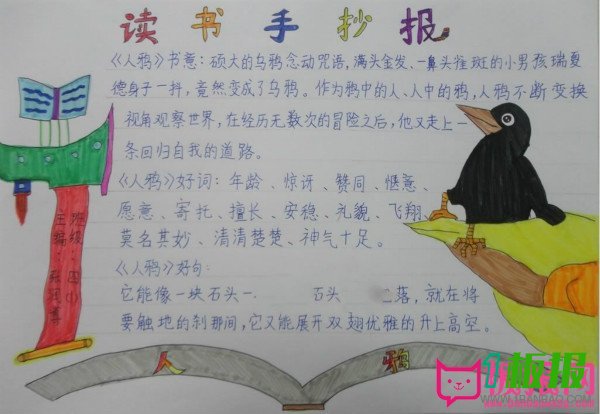 读书手抄报
《人鸦》书意：硕大的乌鸦念动咒语，满头金发、一鼻头雀斑的小男孩瑞夏
德身子一抖，竟然变成了乌鸦。作为鸦中的人、人中的鸦，人鸦不断变换
视角观察世界，在经历无数次的冒险之后，他又走上一
条回归自我的道路。
《人鸦》好词：年龄、惊讶、赞同、惬意、
愿意、寄托、擅长、安稳、礼貌、飞翔、
莫名其妙、清清楚楚、神气十足。
《人鸦》好句：
它能像一块石头一 石头 落，就在将
要触地的刹那间，它又能展开双翅优雅的升上高空。
班级：四(1)
主编：张
人鸦
板报网
WWW.1BANBAO.COM